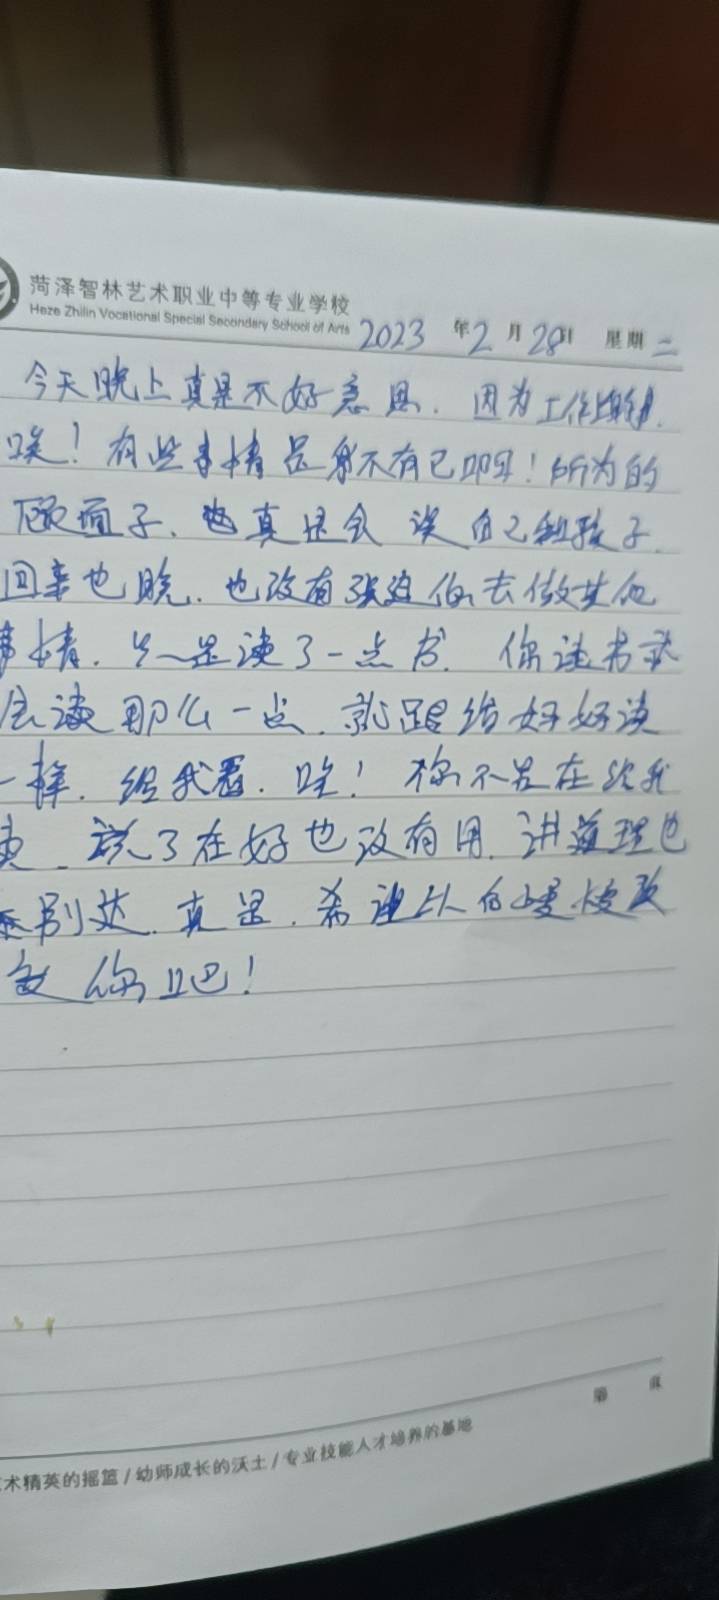 菏泽智林艺术职业中等专业学校
Heze Zhilin Vocational Special Secondary School of Arts
2023 年 2 月 28 日 星期 二
今天晚上真是不好意思. 因为工作
唉! 有些事情是身不有己啊! 所为的
顾面子. 也真是会 误 自己和孩子.
回来也晚. 也没有 去做其他
事情. 只是读了一点书. 你读书就
会读那么一点. 就跟给好好读
一样. 给我看. 唉! 你不是在给我
读. 说了在好也没有用. 讲道理也
特别达. 真是. 希望 慢慢改
变你吧!
第 页
术精英的摇篮 / 幼师成长的沃土 / 专业技能人才培养的基地